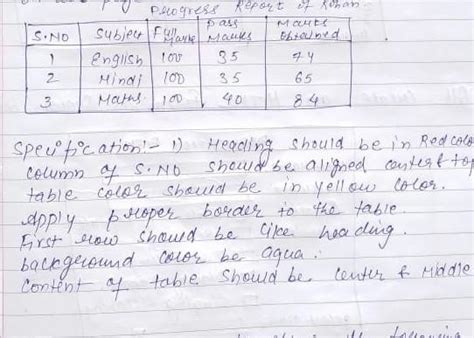 page
Progress Report of Rohan
S.NO Subject Full Marks Pass Marks Marks Obtained
1 English 100 35 74
2 Hindi 100 35 65
3 Maths 100 40 84
Specification:- 1) Heading should be in Red colo
column of S.NO should be aligned center & top
table color should be in yellow color.
Apply proper border to the table.
First row should be like heading.
background color be aqua.
Content of table should be center & Middle
following